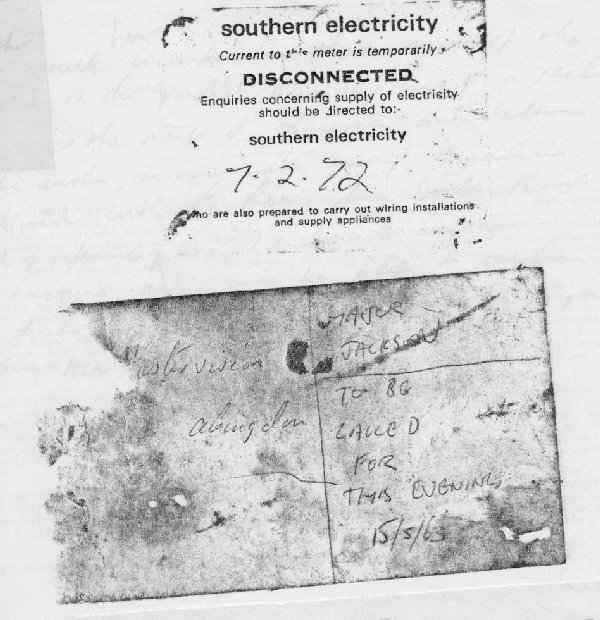 southern electricity
Current to this meter is temporarily
DISCONNECTED
Enquiries concerning supply of electrisity
should be directed to:-
southern electricity
7.2.72
who are also prepared to carry out wiring installations
and supply appliances
MAJOR
JACKSON
TO BE
CALLED
FOR
THIS EVENING
15/5/63
abingdon